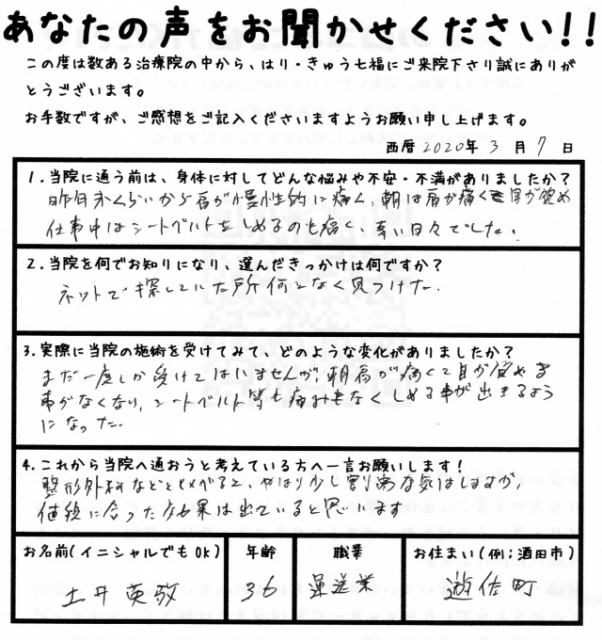 あなたの声をお聞かせください!!
この度は数ある治療院の中から、はり・きゅう七福にご来院下さり誠にありが
とうございます。
お手数ですが、ご感想をご記入くださいますようお願い申し上げます。
西暦 2020年 3 月 7 日
1.当院に通う前は、身体に対してどんな悩みや不安・不満がありましたか?
昨年末くらいから肩が慢性的に痛く、朝は肩が痛くて目が覚め
仕事中はシートベルトをしめるのも痛く、辛い日々でした。
2.当院を何でお知りになり、選んだきっかけは何ですか?
ネットで探していた所何となく見つけた.
3.実際に当院の施術を受けてみて、どのような変化がありましたか?
まだ一度しか受けてはいませんが、朝肩が痛くて目が覚める
事がなくなり、シートベルト等も痛みもなくしめる事が出きるよう
になった.
4.これから当院へ通おうと考えている方へ一言お願いします!
整形外科などと比べると、やはり少し割高な気はしますが、
値段に合った効果は出ていると思います
お名前(イニシャルでもOK) 年齢 職業 お住まい(例;酒田市)
土井 英敬 36 運送業 遊佐町